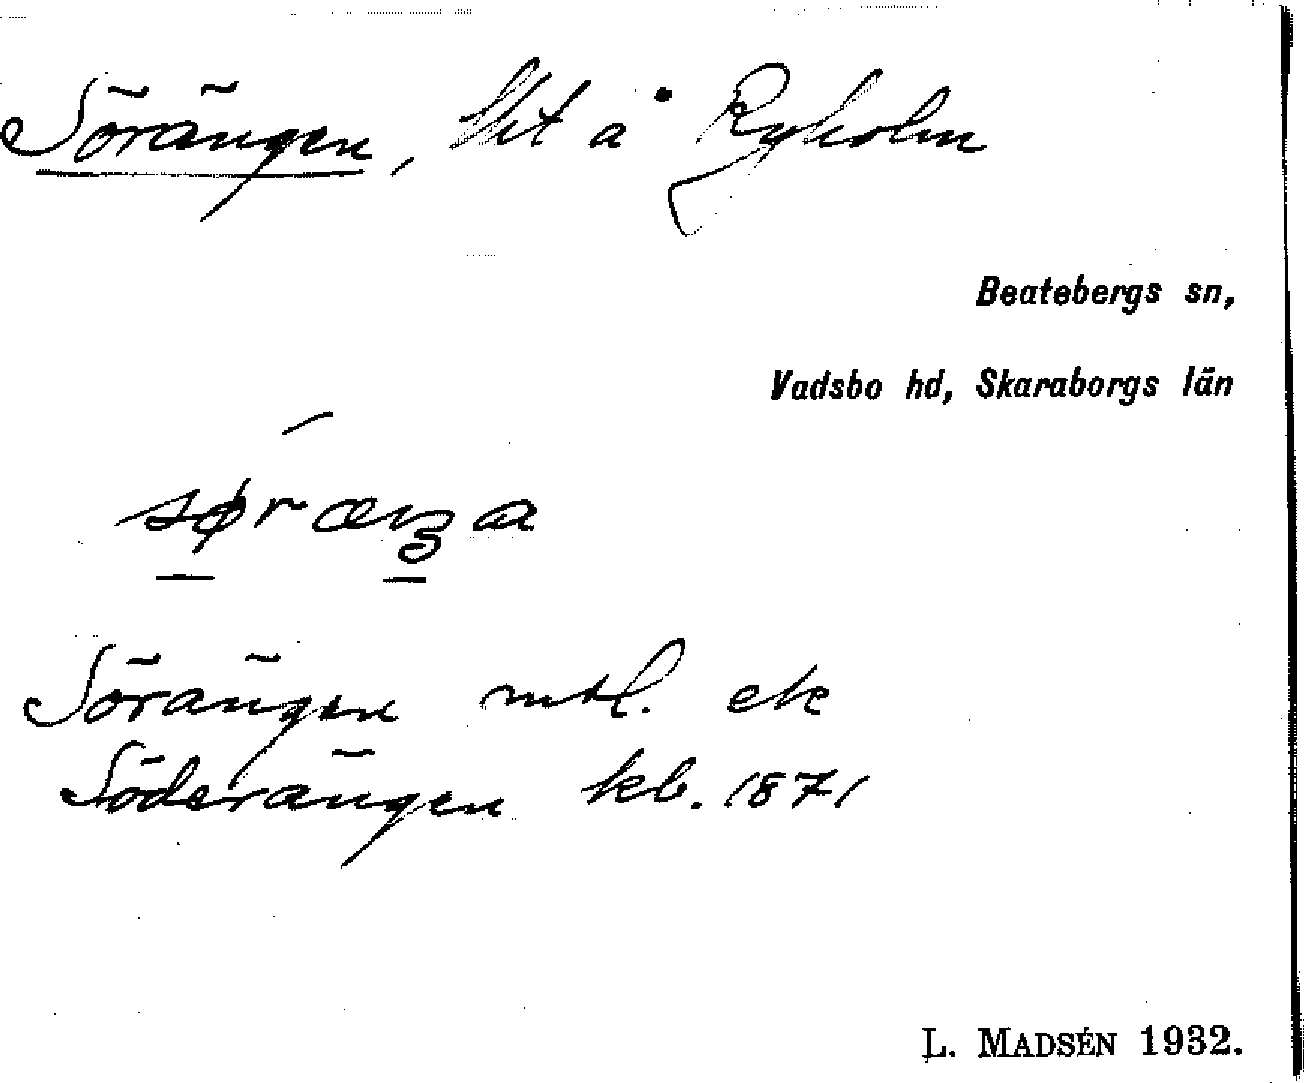 Sörängen, lht å Ryholm
Beatebergs sn,
Vadsbo hd, Skaraborgs län
Sörängen mtl. ek
Söderängen kb. 1871
L. MADSÉN 1932.